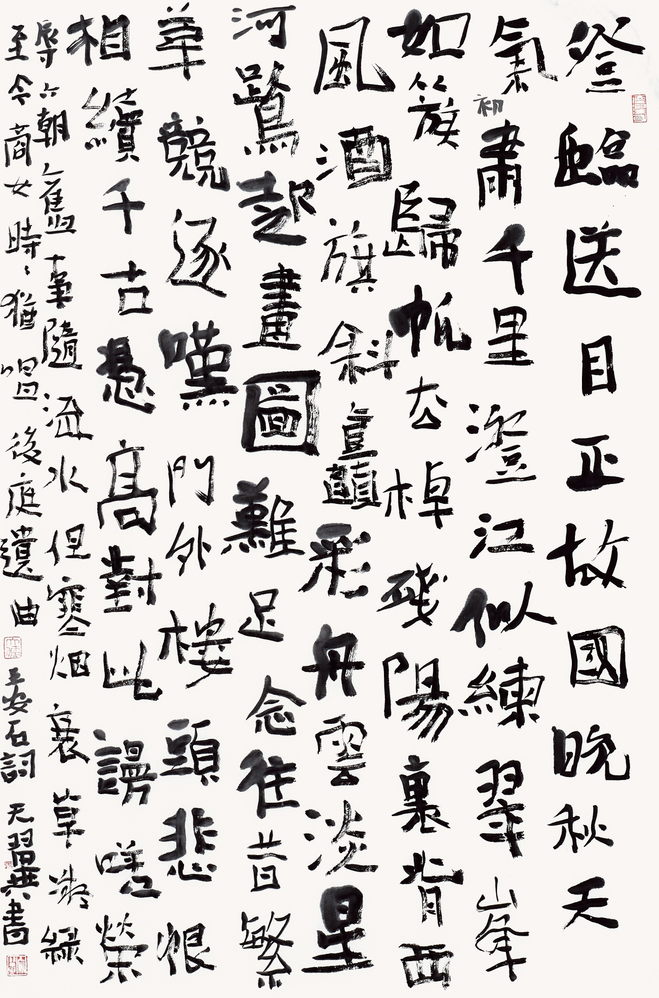 登臨送目正故國晚秋天
氣初肅千里澄江似練翠峯
如簇歸帆去棹殘陽裏背西
風酒旗斜矗彩舟雲淡星
河鷺起畫圖難足念往昔繁
華競逐嘆門外樓頭悲恨
相續千古憑高對此謾嗟榮
辱六朝舊事隨流水但寒烟衰草凝綠
至今商女時〻猶唱後庭遺曲 王安石詞 天翼書